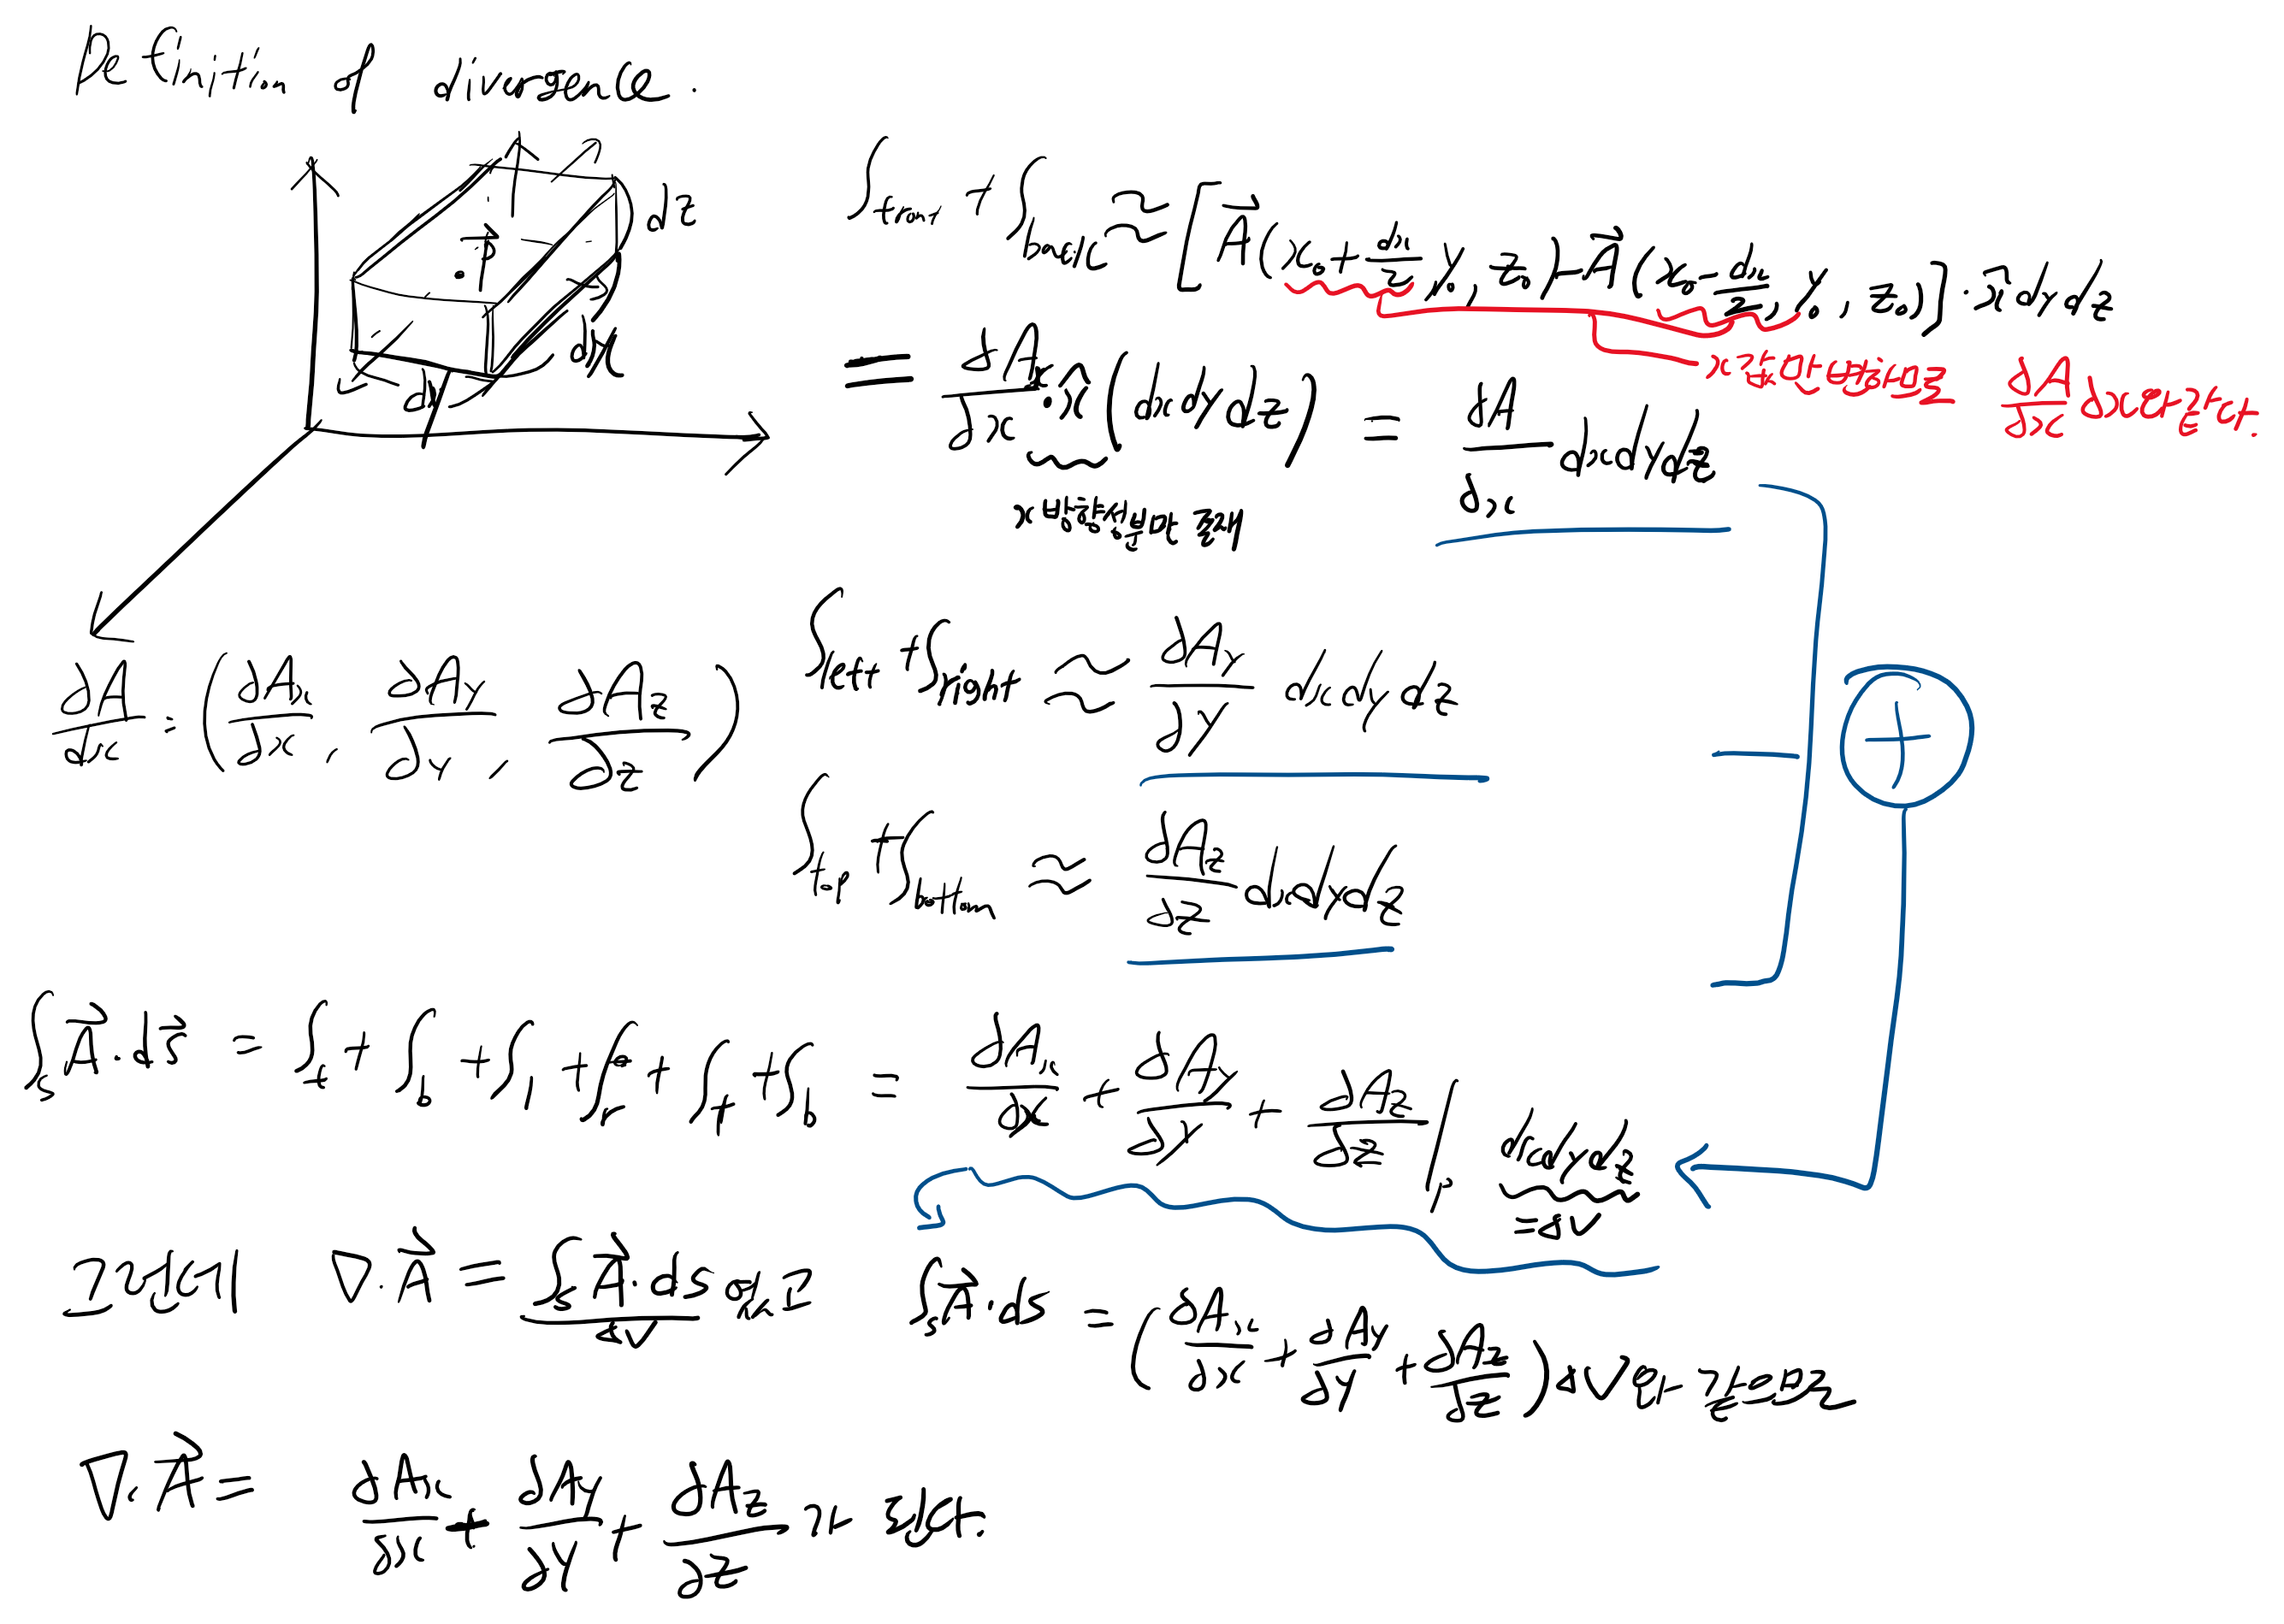 Definition of divergence.
dz
P
dy
dx
∫front + ∫back ≈ [A⃗(x₀+dx/2, y₀, z₀) - A⃗(x₀-dx/2, y₀, z₀)]·x̂ dydz
x값만 변화하므로 ∂A/∂x dx와 같다.
= ∂A/∂x · x̂ (dxdydz) = ∂A/∂x dxdydz
x방향성분만 존재
∫left + ∫right ≈ ∂Ay/∂y dxdydz
∂A/∂x = (∂Ax/∂x, ∂Ay/∂y, ∂Az/∂z)
+
∫top + ∫bottom ≈ ∂Az/∂z dxdydz
∫s A⃗·ds⃗ = ∫f + ∫b + ∫l + ∫r + ∫t + ∫b = ∂Ax/∂x + ∂Ay/∂y + ∂Az/∂z |p dxdydz
=ΔV
∇·A⃗ = ∫s A⃗·ds/ΔV 이고 ∫s A⃗·ds = (∂Ax/∂x + ∂Ay/∂y + ∂Az/∂z)ΔV와 같으므로
∇·A⃗ = ∂Ax/∂x + ∂Ay/∂y + ∂Az/∂z가 된다.